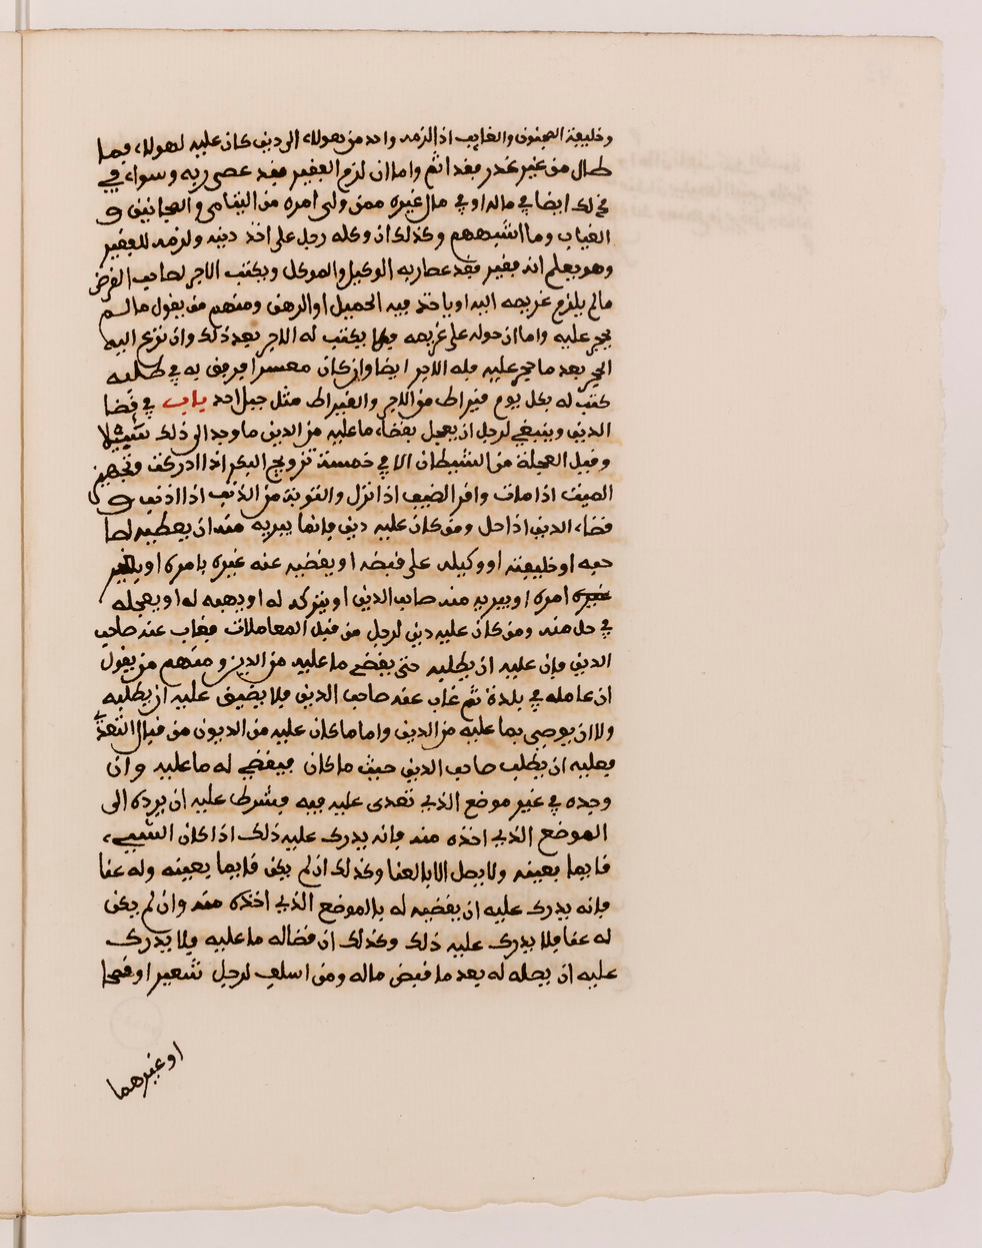 وخليفة المجنون والغايب اذا لزمه واحد من هولاء الى دين كان عليه لهولاء فيما
طال من غير عذر فقد اثم واما ان لزم الفقير فقد عصى ربه وسواء في
ذلك ايضا في ماله او في مال غيره ممن ولي امره من اليتامى والمجانين و
الغياب وما اشبههم وكذلك ان وكله رجل على اخذ دينه ولزمه للفقير
وهو يعلم انه فقير فقد عصا ربه الوكيل والموكل ويكتب الاجر لصاحب القرض
ما لم يلزم غريمه اليه او ياخذ فيه الحميل او الرهن ومنهم من يقول ما لم
يحجر عليه واما ان حوله على غريمه فلا يكتب له الاجر بعد ذلك وان نزع اليه
الحجر بعد ما حجر عليه فله الاجر ايضا وان كان معسرا فرفق به في طلبه
كتب له بكل يوم قيراط من الاجر والقيراط مثل جبل احد باب في قضا
الدين وينبغي لرجل ان يعجل بقضاء ما عليه من الدين ما وجد الى ذلك سبيلا
وقيل العجلة من الشيطان الا في خمسة تزويج البكر اذا ادركت وتجهيز
الميت اذا مات واقر الضيف اذا نزل والتوبة من الذنب اذا اذنب و
قضاء الدين اذا حل ومن كان عليه دين فانما يبريه منه ان يعطيه لصا
حبه او خليفته او وكيله على قبضه او يقضيه عنه غيره بامره او بغير
امره او يبريه منه صاحب الدين او يتركه له او يهبه له او يجعله
في حل منه ومن كان عليه دين لرجل من قبل المعاملات فغاب عنه صاحب
الدين فان عليه ان يطلبه حتى يقضي ما عليه من الدين ومنهم من يقول
ان عامله في بلدة ثم غاب عنه صاحب الدين فلا يضيق عليه ان يطلبه
ولا ان يوصي بما عليه من الدين واما ما كان عليه من الديون من قبل التعدي
فعليه ان يطلب صاحب الدين حيث ما كان فيقضي له ما عليه وان
وجده في غير موضع الذي تعدى عليه فيه فشرط عليه ان يرده الى
الموضع الذي اخذه منه فانه يدرك عليه ذلك اذا كان الشيء
قايما بعينه ولا يحل الا بالعنا وكذلك ان لم يكن قايما بعينه وله عنا
فانه يدرك عليه ان يقضيه له بالموضع الذي اخذه منه وان لم يكن
له عنا فلا يدرك عليه ذلك وكذلك ان قضا له ما عليه فلا يدرك
عليه ان يحله له بعد ما قبض ماله ومن اسلف لرجل شعيرا او قمحا
او غيرهما